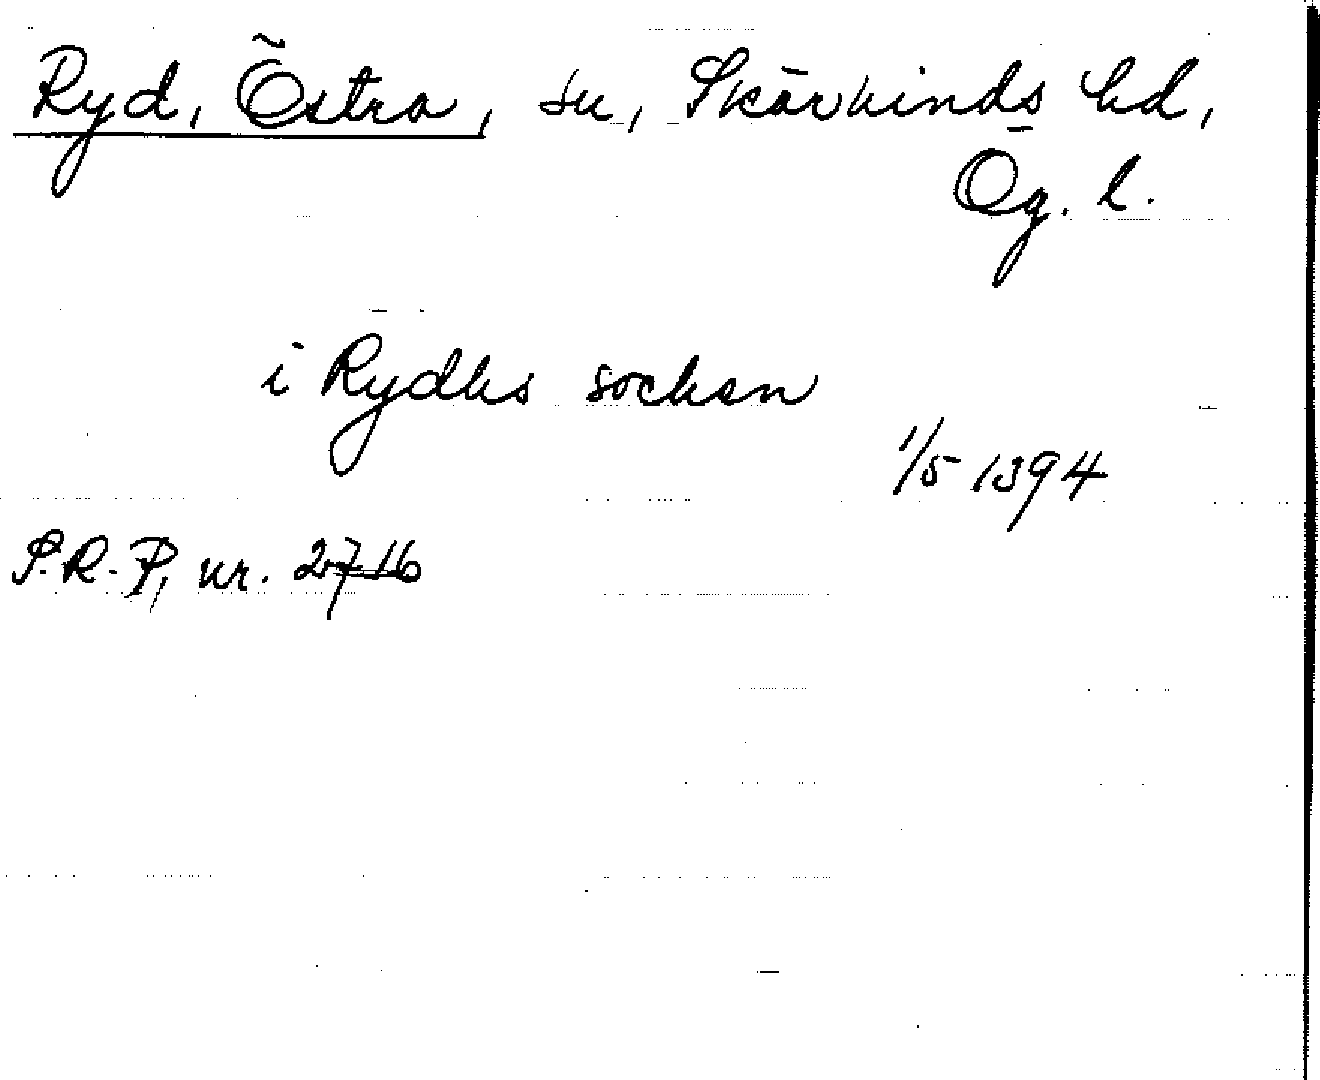 Ryd, Östra, sn, Skärkinds hd,
Ög. l.
i Rydhs socken
1/5 1394
S.R.P, nr. 2716